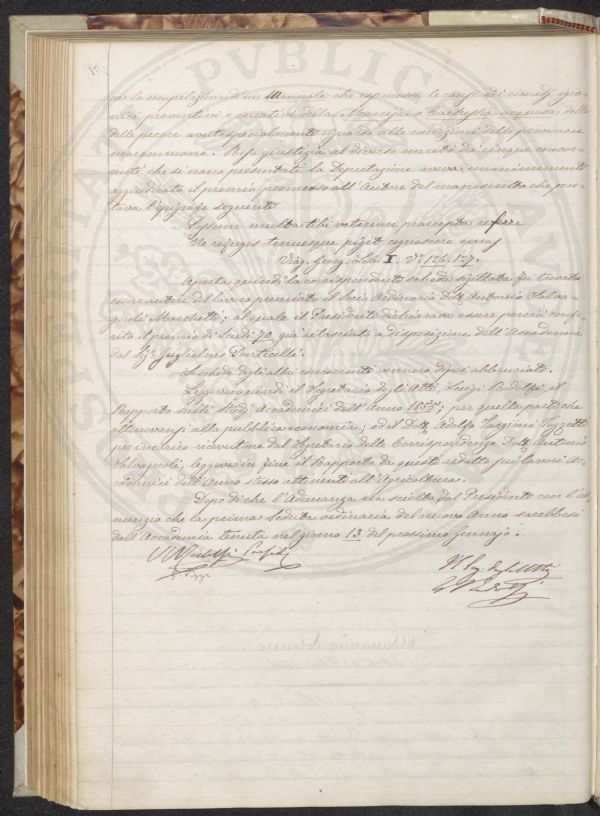 per la compilazione di un Manuale che esponesse le cause ed i rimedj igie-
nici preventivi e curativi della Marciaja o Cachessia acquosa delle
delle pecore avuto specialmente riguardo alle condizioni delle provincie
maremmane. Resa giustizia al diverso merito dei cinque concor-
renti che si erano presentati la Deputazione aveva unanimemente
aggiudicato il premio promesso all'Autore del manoscritto che por-
tava l'epigrafe seguente
Possum multa tibi veterum praecepta referre
Ne refugis tenuesque piget cognoscere curas
Virg. Georg. Lib. I. V. 176. 177.
Aperta quindi la corrispondente scheda sigillata fu trovato
essere autore del lavoro premiato il Socio Ordinario Dott. Antonio Salva-
gnoli Marchetti, al quale il Presidente dichiarava essere perciò confe-
rito il premio di Scudi 70 già rilasciato a disposizione dell'Accademia
dal Sig. Guglielmo Ponticelli.
Le schede degli altri concorrenti vennero dipoi abbruciate.
Leggeva quindi il Segretario degli Atti Luigi Ridolfi il
Rapporto sulli Studj Accademici dell'Anno 1855; per quella parte che
attenevasi alla pubblica economia; ed il Dott. Adolfo Targioni Tozzetti
per incarico ricevutone dal Segretario delle Corrispondenze Dott. Antonio
Salvagnoli, leggeva in fine il Rapporto da questi redatto pei lavori Ac-
cademici dell'Anno stesso attinenti all'Agricoltura.
Dopo di che l'Adunanza era sciolta dal Presidente con l'an-
nunzio che la prima Seduta ordinaria del nuovo Anno sarebbesi
dall'Accademia tenuta nel giorno 13 del prossimo Gennajo.
Ridolfi
Il Seg. degli Atti
L. Ridolfi